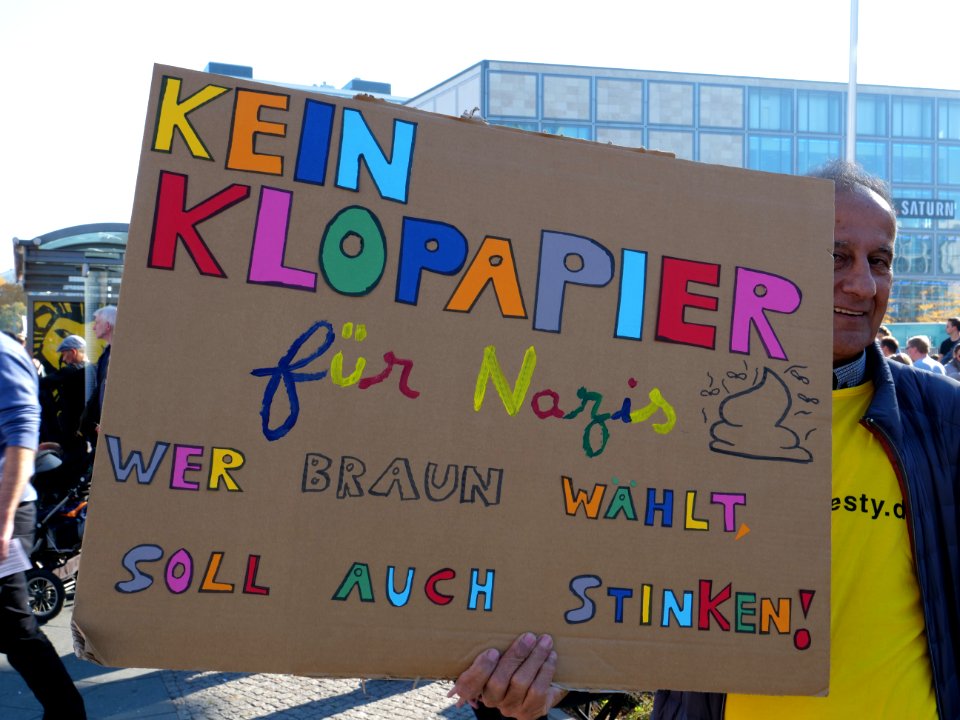 KEIN
KLOPAPIER
für Nazis
WER BRAUN WÄHLT,
SOLL AUCH STINKEN!
SATURN
esty.d